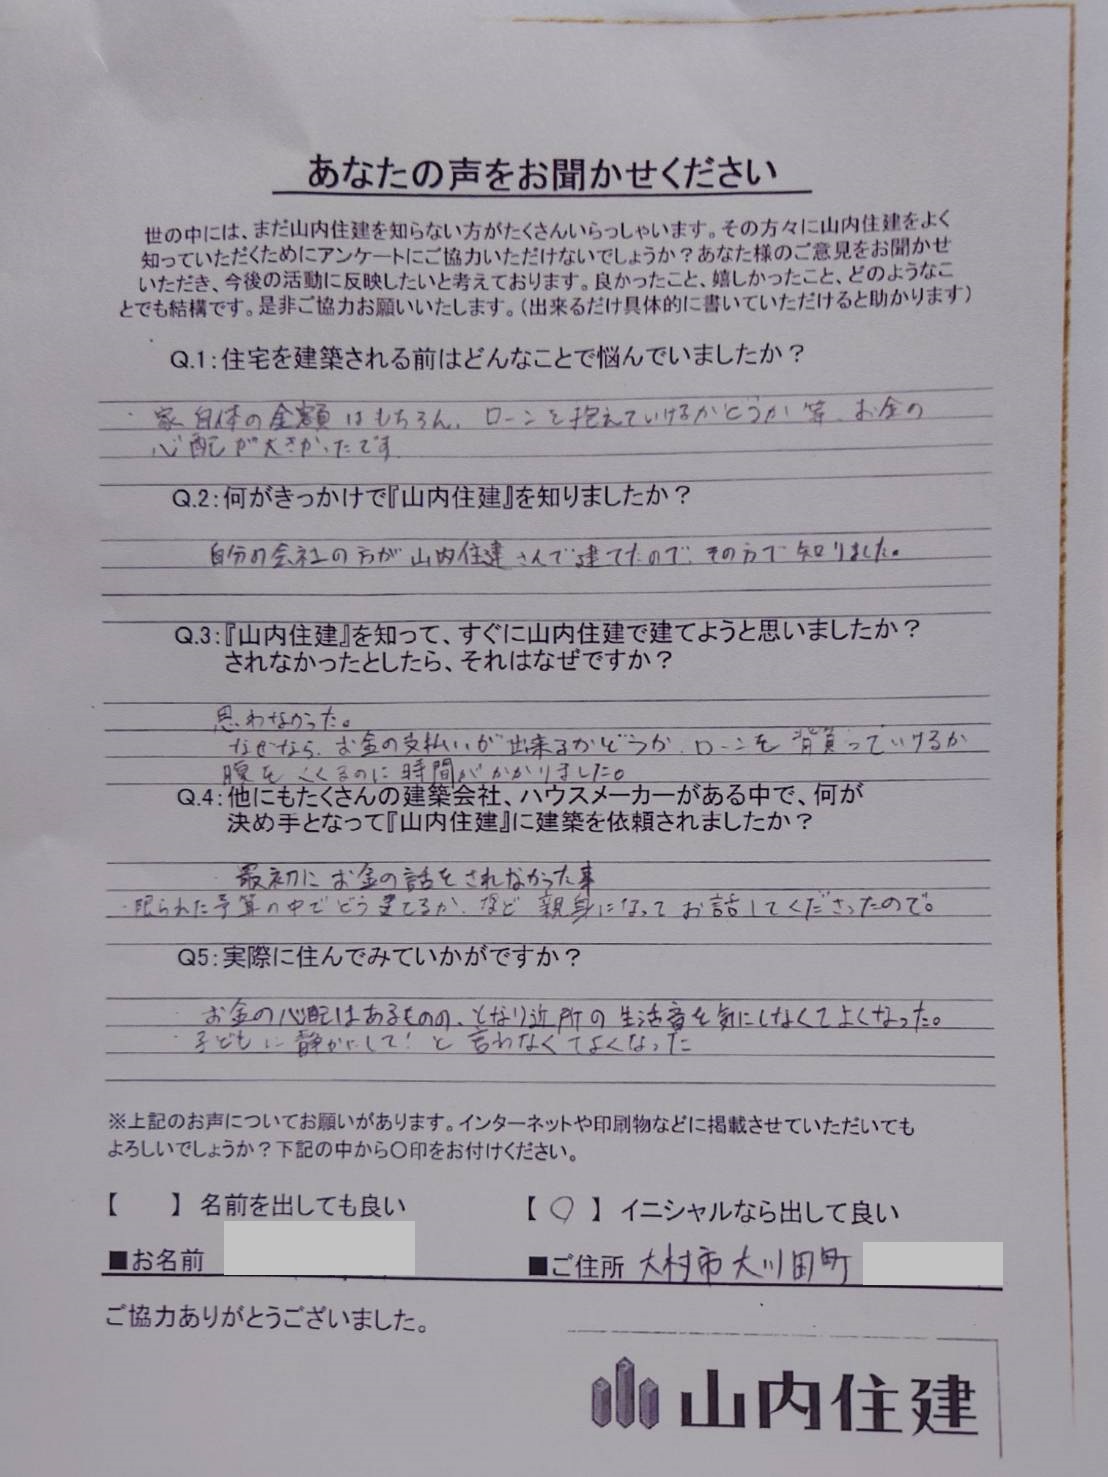 あなたの声をお聞かせください
世の中には、まだ山内住建を知らない方がたくさんいらっしゃいます。その方々に山内住建をよく
知っていただくためにアンケートにご協力いただけないでしょうか？あなた様のご意見をお聞かせ
いただき、今後の活動に反映したいと考えております。良かったこと、嬉しかったこと、どのようなこ
とでも結構です。是非ご協力お願いいたします。（出来るだけ具体的に書いていただけると助かります）
Q.1：住宅を建築される前はどんなことで悩んでいましたか？
家自体の金額はもちろん、ローンを抱えていけるかどうか等、お金の
心配が大きかったです
Q.2：何がきっかけで『山内住建』を知りましたか？
自分の会社の方が山内住建さんで建てたので、その方で知りました。
Q.3：『山内住建』を知って、すぐに山内住建で建てようと思いましたか？
されなかったとしたら、それはなぜですか？
思わなかった。
なぜなら、お金の支払いが出来るかどうか、ローンを背負っていけるか
腹をくくるのに時間がかかりました。
Q.4：他にもたくさんの建築会社、ハウスメーカーがある中で、何が
決め手となって『山内住建』に建築を依頼されましたか？
最初にお金の話をされなかった事
・限られた予算の中でどう建てるか、など親身になってお話してくださったので。
Q5：実際に住んでみていかがですか？
お金の心配はあるものの、となり近所の生活音を気にしなくてよくなった。
子どもに静かにして！と言わなくてよくなった
※上記のお声についてお願いがあります。インターネットや印刷物などに掲載させていただいても
よろしいでしょうか？下記の中から〇印をお付けください。
【　　】 名前を出しても良い　【 〇 】 イニシャルなら出して良い
■お名前　■ご住所 大村市大川田町
ご協力ありがとうございました。
山内住建